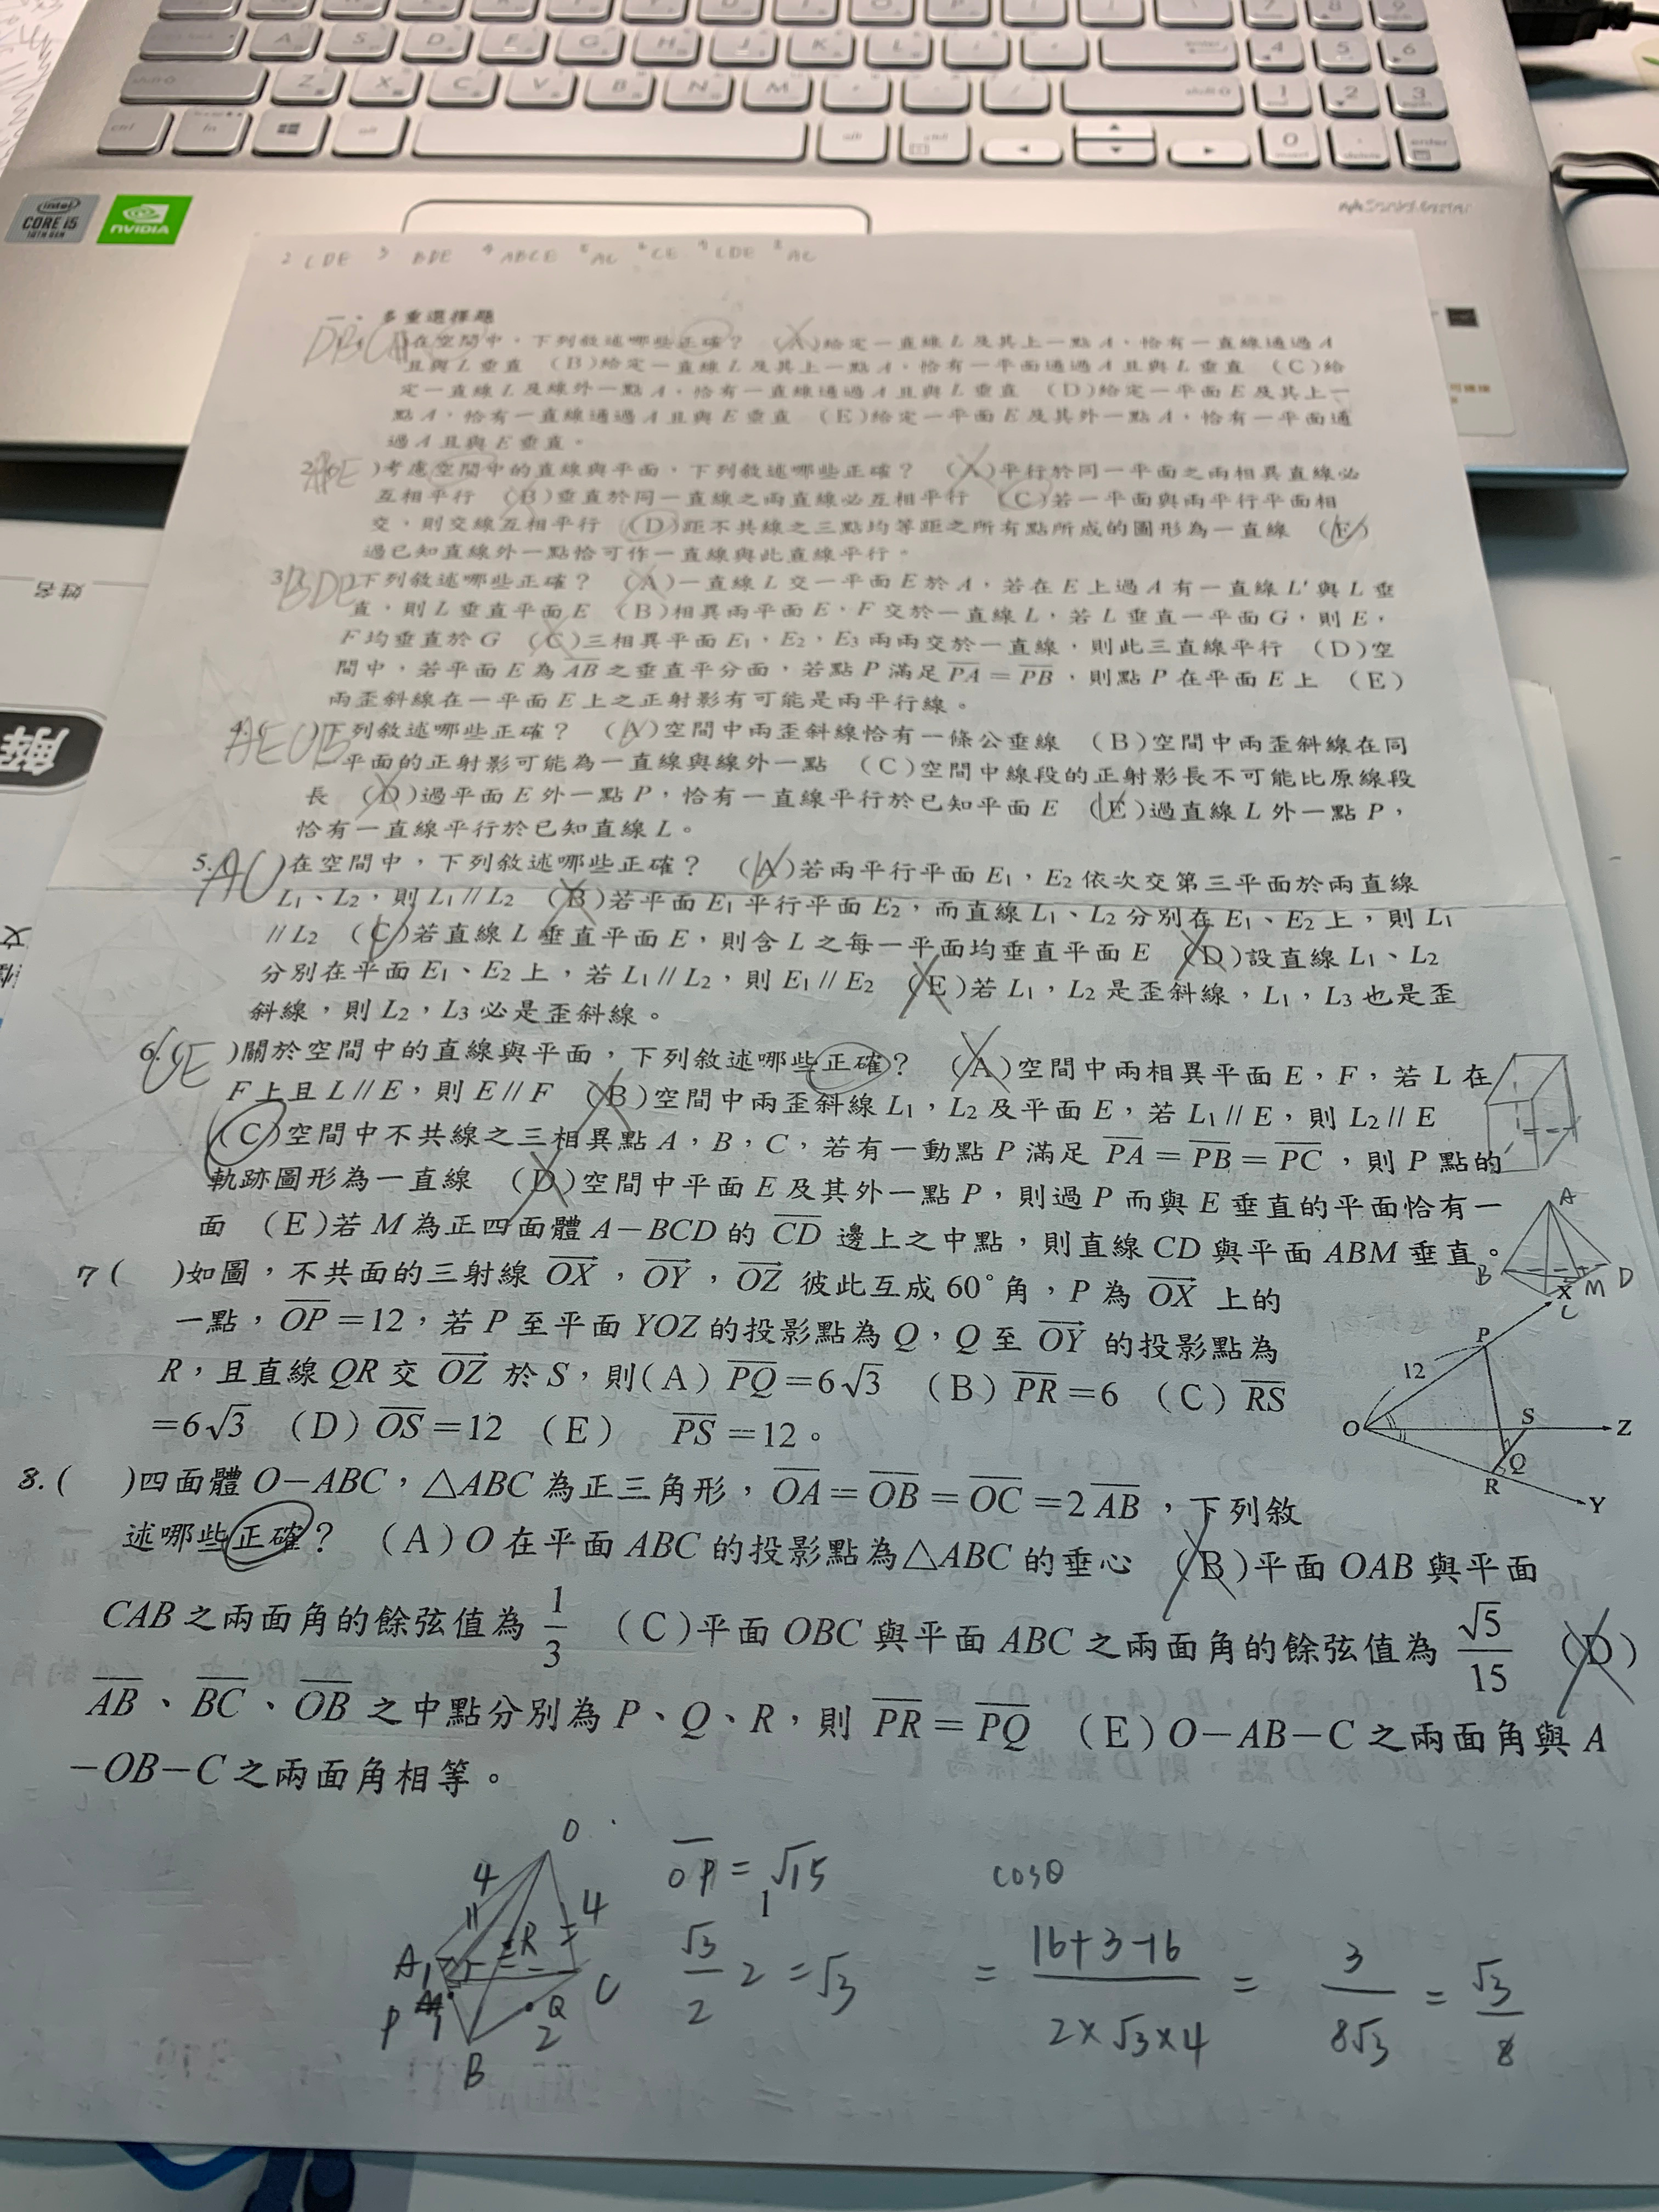 intel
CORE i5
10TH GEN
NVIDIA
2 CDE 3 BDE 4 ABCE 5 AC 6 CE 7 CDE 8 AC
一、多重選擇題
DBC )在空間中,下列敘述哪些正確? (A)給定一直線 L 及其上一點 A,恰有一直線通過 A
且與 L 垂直 (B)給定一直線 L 及其上一點 A,恰有一平面通過 A 且與 L 垂直 (C)給
定一直線 L 及線外一點 A,恰有一直線通過 A 且與 L 垂直 (D)給定一平面 E 及其上一
點 A,恰有一直線通過 A 且與 E 垂直 (E)給定一平面 E 及其外一點 A,恰有一平面通
過 A 且與 E 垂直。
2. )考慮空間中的直線與平面,下列敘述哪些正確? (A)平行於同一平面之兩相異直線必
互相平行 (B)垂直於同一直線之兩直線必互相平行 (C)若一平面與兩平行平面相
交,則交線互相平行 (D)距不共線之三點均等距之所有點所成的圖形為一直線 (E)
過已知直線外一點恰可作一直線與此直線平行。
3. BDE 下列敘述哪些正確? (A)一直線 L 交一平面 E 於 A,若在 E 上過 A 有一直線 L' 與 L 垂
直,則 L 垂直平面 E (B)相異兩平面 E,F 交於一直線 L,若 L 垂直一平面 G,則 E,
F 均垂直於 G (C)三相異平面 E₁,E₂,E₃ 兩兩交於一直線,則此三直線平行 (D)空
間中,若平面 E 為 A̅B̅ 之垂直平分面,若點 P 滿足 P̅A̅ = P̅B̅,則點 P 在平面 E 上 (E)
兩歪斜線在一平面 E 上之正射影有可能是兩平行線。
4. AECB )下列敘述哪些正確? (A)空間中兩歪斜線恰有一條公垂線 (B)空間中兩歪斜線在同
一平面的正射影可能為一直線與線外一點 (C)空間中線段的正射影長不可能比原線段
長 (D)過平面 E 外一點 P,恰有一直線平行於已知平面 E (E)過直線 L 外一點 P,
恰有一直線平行於已知直線 L。
5. AC )在空間中,下列敘述哪些正確? (A)若兩平行平面 E₁,E₂ 依次交第三平面於兩直線
L₁、L₂,則 L₁ // L₂ (B)若平面 E₁ 平行平面 E₂,而直線 L₁、L₂ 分別在 E₁、E₂ 上,則 L₁
// L₂ (C)若直線 L 垂直平面 E,則含 L 之每一平面均垂直平面 E (D)設直線 L₁、L₂
分別在平面 E₁、E₂ 上,若 L₁ // L₂,則 E₁ // E₂ (E)若 L₁,L₂ 是歪斜線,L₁,L₃ 也是歪
斜線,則 L₂,L₃ 必是歪斜線。
6. ( CE )關於空間中的直線與平面,下列敘述哪些正確? (A)空間中兩相異平面 E,F,若 L 在
F 上且 L // E,則 E // F (B)空間中兩歪斜線 L₁,L₂ 及平面 E,若 L₁ // E,則 L₂ // E
(C)空間中不共線之三相異點 A,B,C,若有一動點 P 滿足 P̅A̅ = P̅B̅ = P̅C̅,則 P 點的
軌跡圖形為一直線 (D)空間中平面 E 及其外一點 P,則過 P 而與 E 垂直的平面恰有一
面 (E)若 M 為正四面體 A-BCD 的 C̅D̅ 邊上之中點,則直線 CD 與平面 ABM 垂直。
A
B
C
M
D
7 ( )如圖,不共面的三射線 OX→,OY→,OZ→ 彼此互成 60° 角,P 為 OX→ 上的
一點,O̅P̅ = 12,若 P 至平面 YOZ 的投影點為 Q,Q 至 OY→ 的投影點為
R,且直線 QR 交 OZ→ 於 S,則(A) P̅Q̅ = 6√3 (B) P̅R̅ = 6 (C) R̅S̅
= 6√3 (D) O̅S̅ = 12 (E) P̅S̅ = 12。
X
P
12
O
S
Z
Q
R
Y
8. ( )四面體 O-ABC,△ABC 為正三角形,O̅A̅ = O̅B̅ = O̅C̅ = 2 A̅B̅,下列敘
述哪些正確? (A) O 在平面 ABC 的投影點為△ABC 的垂心 (B)平面 OAB 與平面
CAB 之兩面角的餘弦值為 1/3 (C)平面 OBC 與平面 ABC 之兩面角的餘弦值為 √5/15 (D)
A̅B̅、B̅C̅、O̅B̅ 之中點分別為 P、Q、R,則 P̅R̅ = P̅Q̅ (E) O-AB-C 之兩面角與 A
-OB-C 之兩面角相等。
O
4
4
R
A
C
P
Q
2
B
O̅P̅ = √15
1
√3/2 2 = √3
cosθ
= (16+3-16)/(2×√3×4) = 3/(8√3) = √3/8